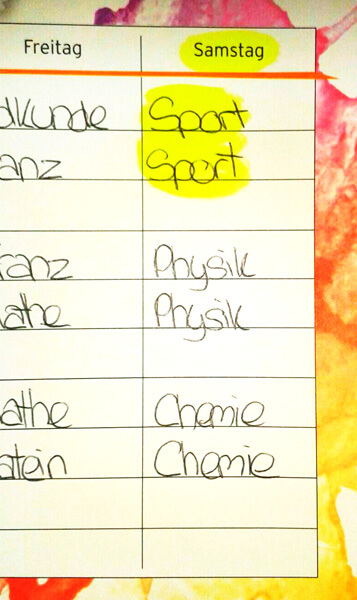 Freitag Samstag
dkunde Sport
anz Sport
ranz Physik
athe Physik
athe Chemie
atein Chemie